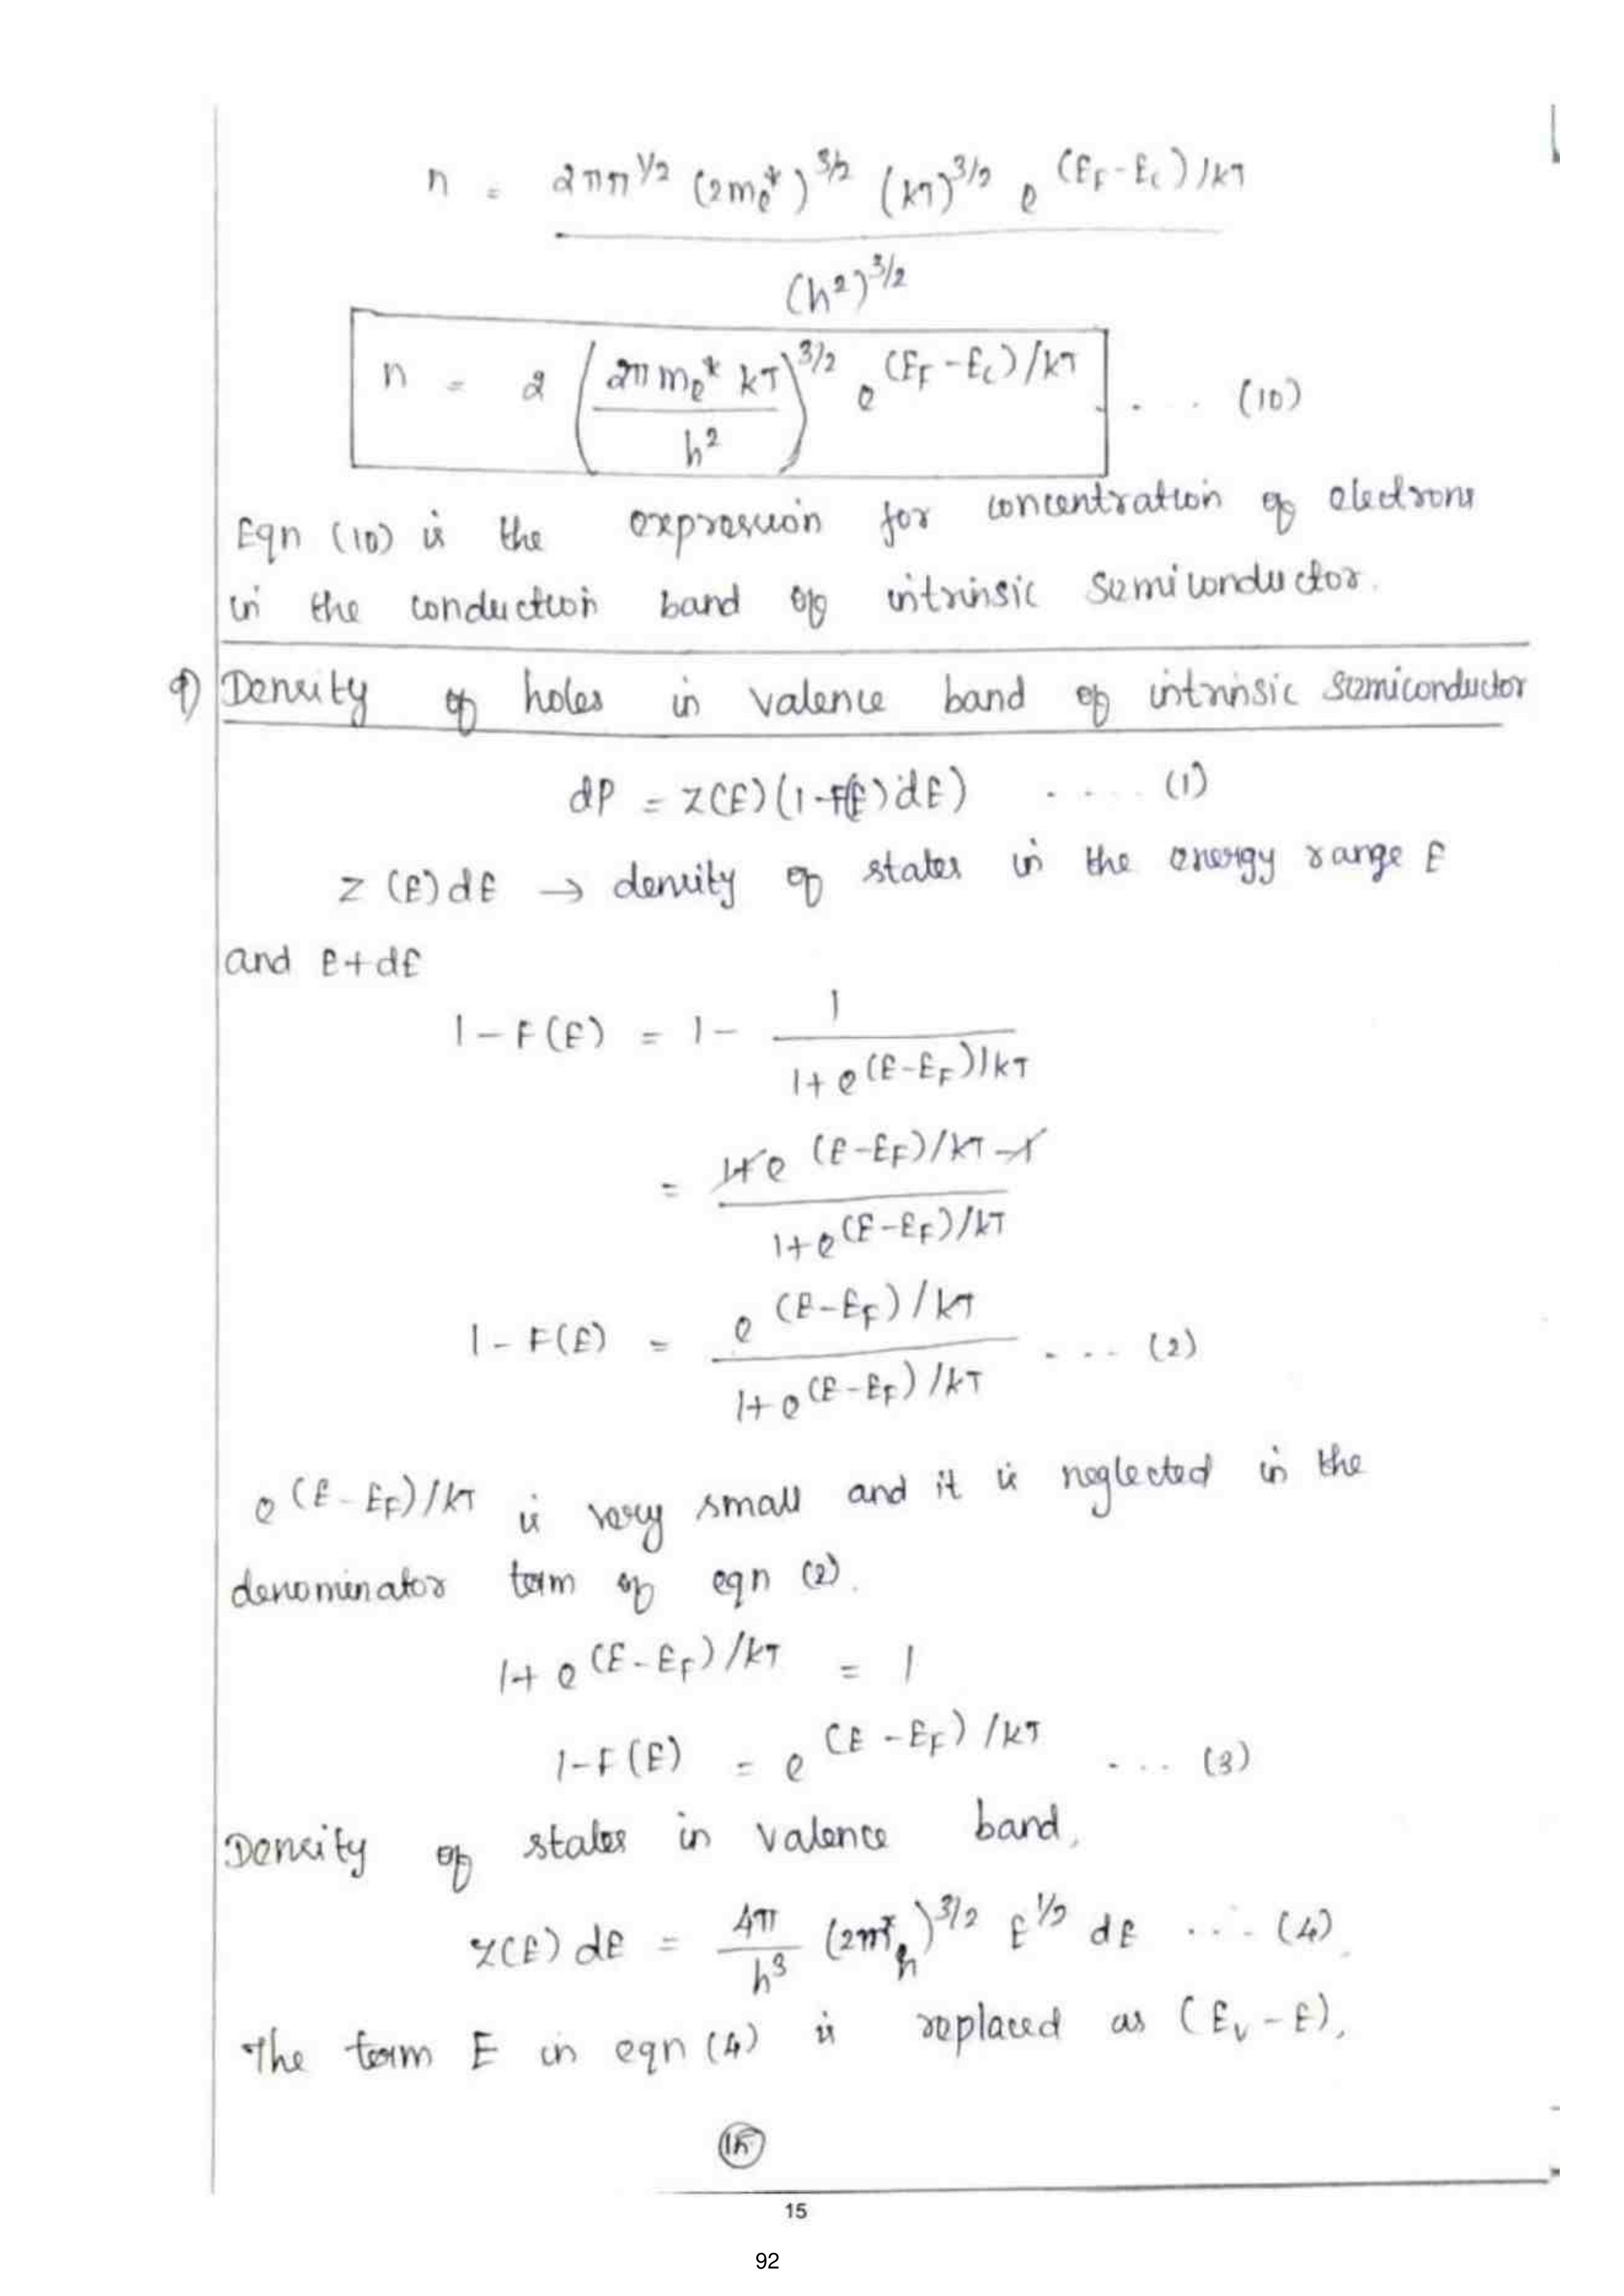 n = 2ππ^1/2 (2me*)^3/2 (kT)^3/2 e^(EF-Ec)/kT
(h²)^3/2
n = 2 (2π me* kT / h²)^3/2 e^(EF-Ec)/kT . . . (10)
Eqn (10) is the expression for concentration of electrons
in the conduction band of intrinsic semiconductor.
9) Density of holes in valence band of intrinsic semiconductor
dP = Z(E)(1-F(E)dE) .... (1)
Z(E)dE → density of states in the energy range E
and E+dE
1-F(E) = 1- 1 / 1+e^(E-EF)/kT
= 1+e^(E-EF)/kT -1 / 1+e^(E-EF)/kT
1-F(E) = e^(E-EF)/kT / 1+e^(E-EF)/kT . . . . (2)
e^(E-EF)/kT is very small and it is neglected in the
denominator term of eqn (2).
1+e^(E-EF)/kT = 1
1-F(E) = e^(E-EF)/kT .... (3)
Density of states in valence band,
Z(E) dE = 4π/h³ (2m*h)^3/2 E^1/2 dE .... (4)
The term E in eqn (4) is replaced as (Ev-E),
15
15
92